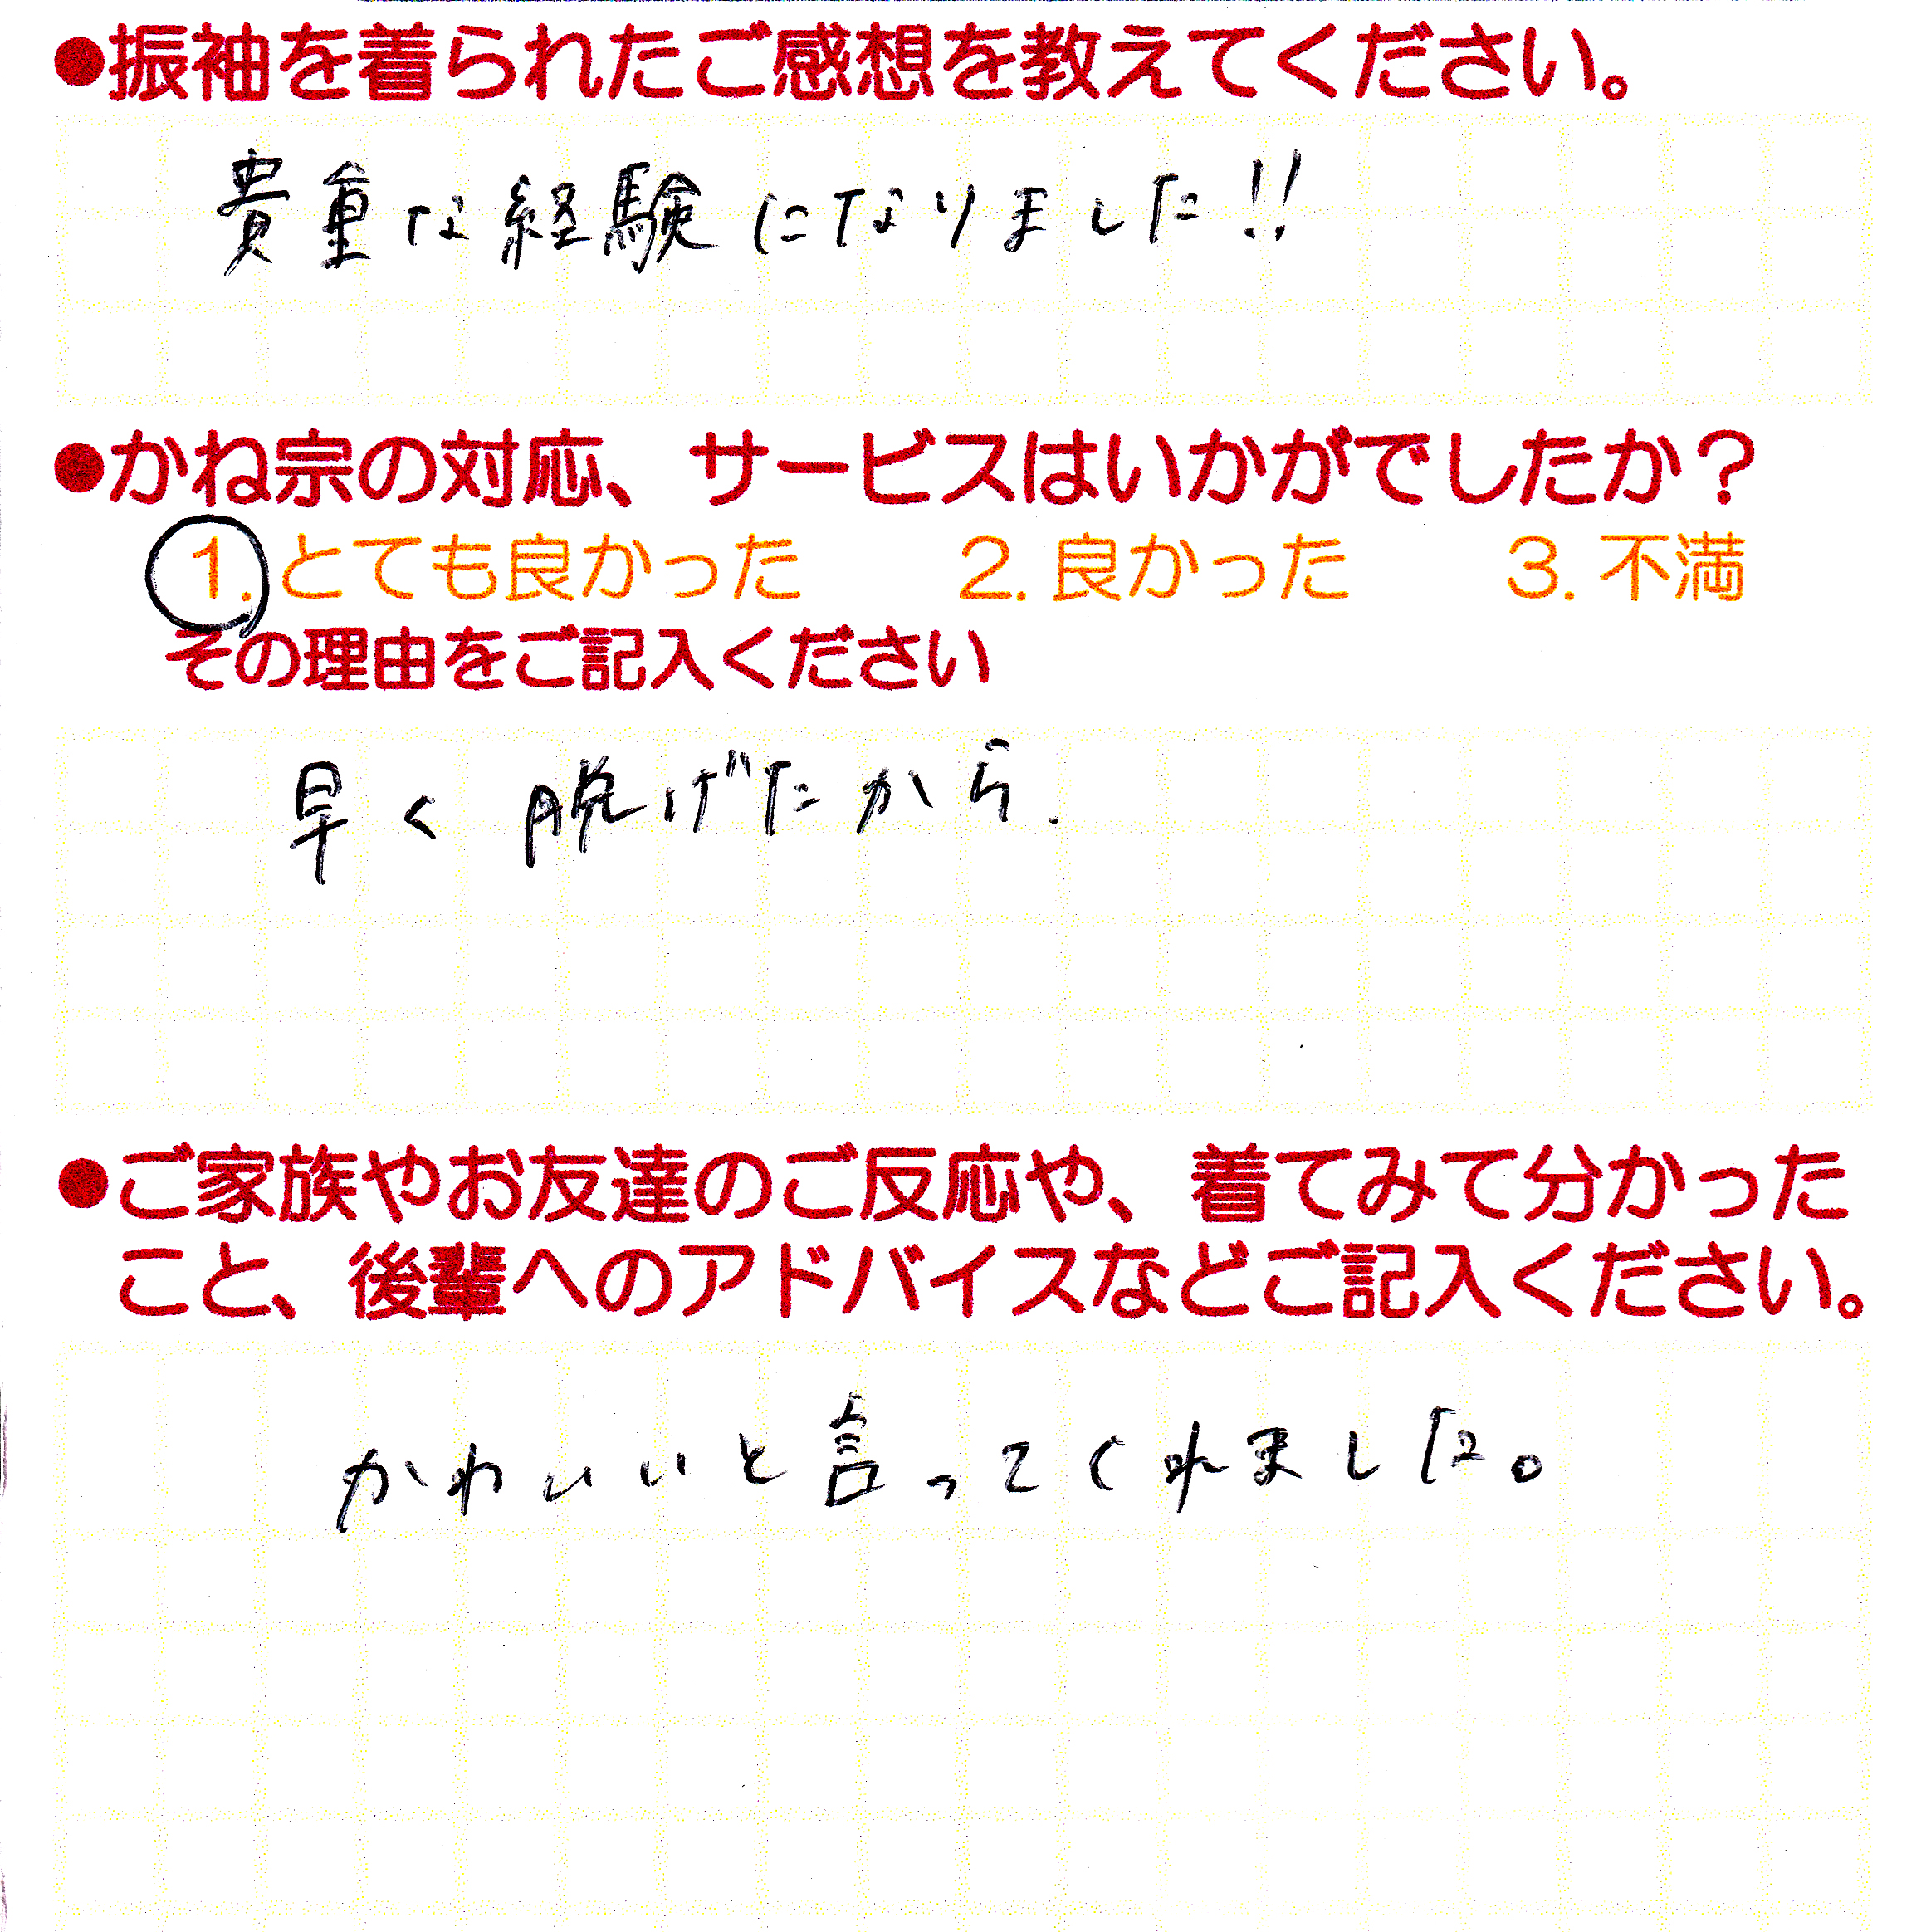 ●振袖を着られたご感想を教えてください。
貴重な経験になりました!!
●かね宗の対応、サービスはいかがでしたか？
1. とても良かった　2. 良かった　3. 不満
その理由をご記入ください
早く脱げたから.
●ご家族やお友達のご反応や、着てみて分かった
こと、後輩へのアドバイスなどご記入ください。
かわいいと言ってくれました。